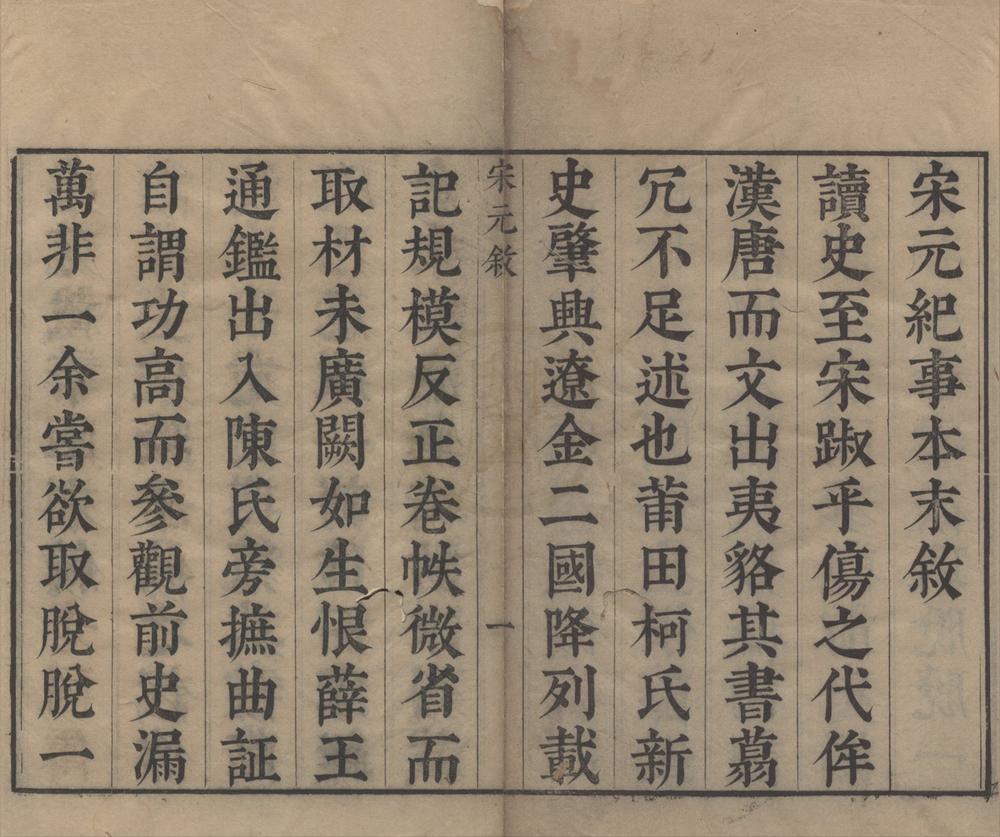 宋元紀事本末敘
讀史至宋踧乎傷之代侔
漢唐而文出夷貉其書蒻
冗不足述也莆田柯氏新
史肇興遼金二國降列載
宋元敘
一
記規模反正卷帙微省而
取材未廣闕如生恨薛王
通鑑出入陳氏旁摭曲証
自謂功高而參觀前史漏
萬非一余嘗欲取脫脫一